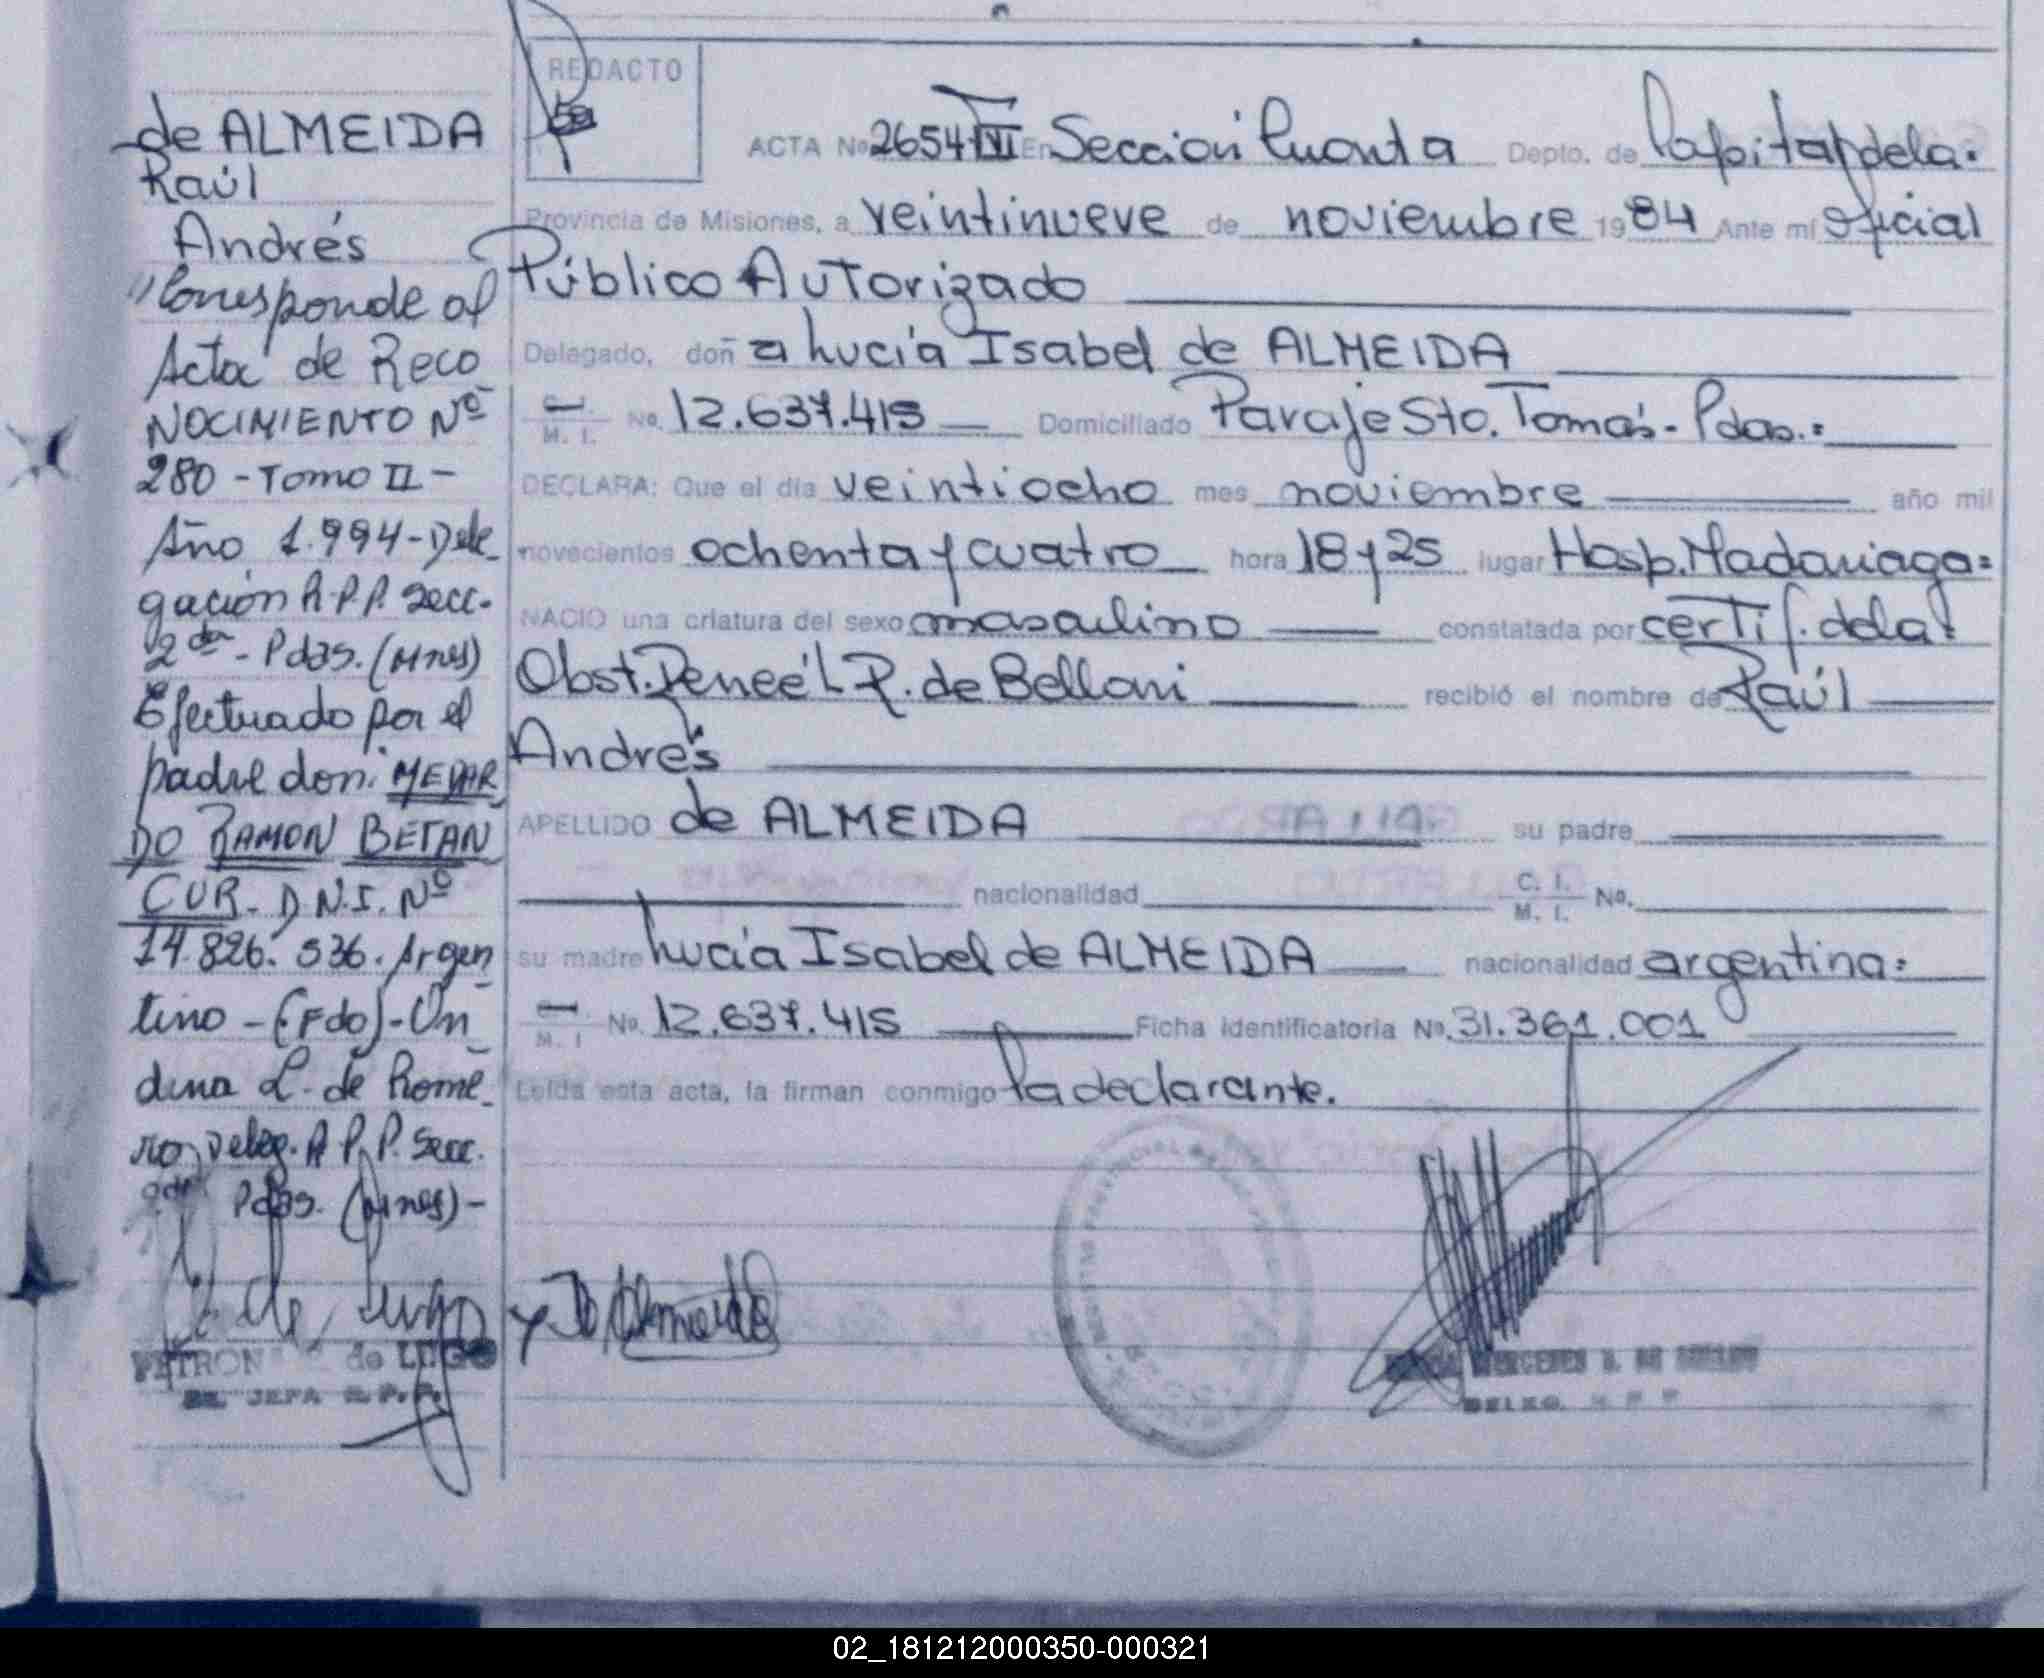 de ALMEIDA
Raúl
Andrés
"Corresponde al
Acta de Reco
NOCIMIENTO Nº
280 - Tomo II -
Año 1.994 - Dele_
gación R.P.P. Secc.
2da - Pdas. (Mnes)
Efectuado por el
padre don: MEDAR
DO RAMON BETAN
CUR - D.N.I. Nº
14.826.536. Argen
tino - (Fdo) - On
dina L. de Rome_
ro, Deleg. R P.P. Secc.
2da Pdas. (Mnes) -
PETRON de LUGO
JEFA R. P. P.
REDACTO
ACTA Nº 2654 T IV En Sección Cuarta Depto. de Capital, de la.
Provincia de Misiones, a veintinueve de noviembre 1984 Ante mí Oficial
Público Autorizado
Delegado, doñ a Lucía Isabel de ALMEIDA
M. I. No. 12.637.415 Domiciliado Paraje Sto. Tomás - Pdas.=
DECLARA: Que el día veintiocho mes noviembre año mil
novecientos ochenta y cuatro hora 18 y 25 lugar Hosp. Madariaga=
NACIO una criatura del sexo masculino constatada por certif. de la
Obst. Reneé L R. de Bellani recibió el nombre de Raúl
Andrés
APELLIDO de ALMEIDA su padre
nacionalidad C. I. M. I. No.
su madre Lucía Isabel de ALMEIDA nacionalidad argentina=
M. I No. 12.637.415 Ficha identificatoria Nº. 31.361.001
Leída esta acta, la firman conmigo la declarante.
MERCEDES
DELEG. R P P
02_181212000350-000321